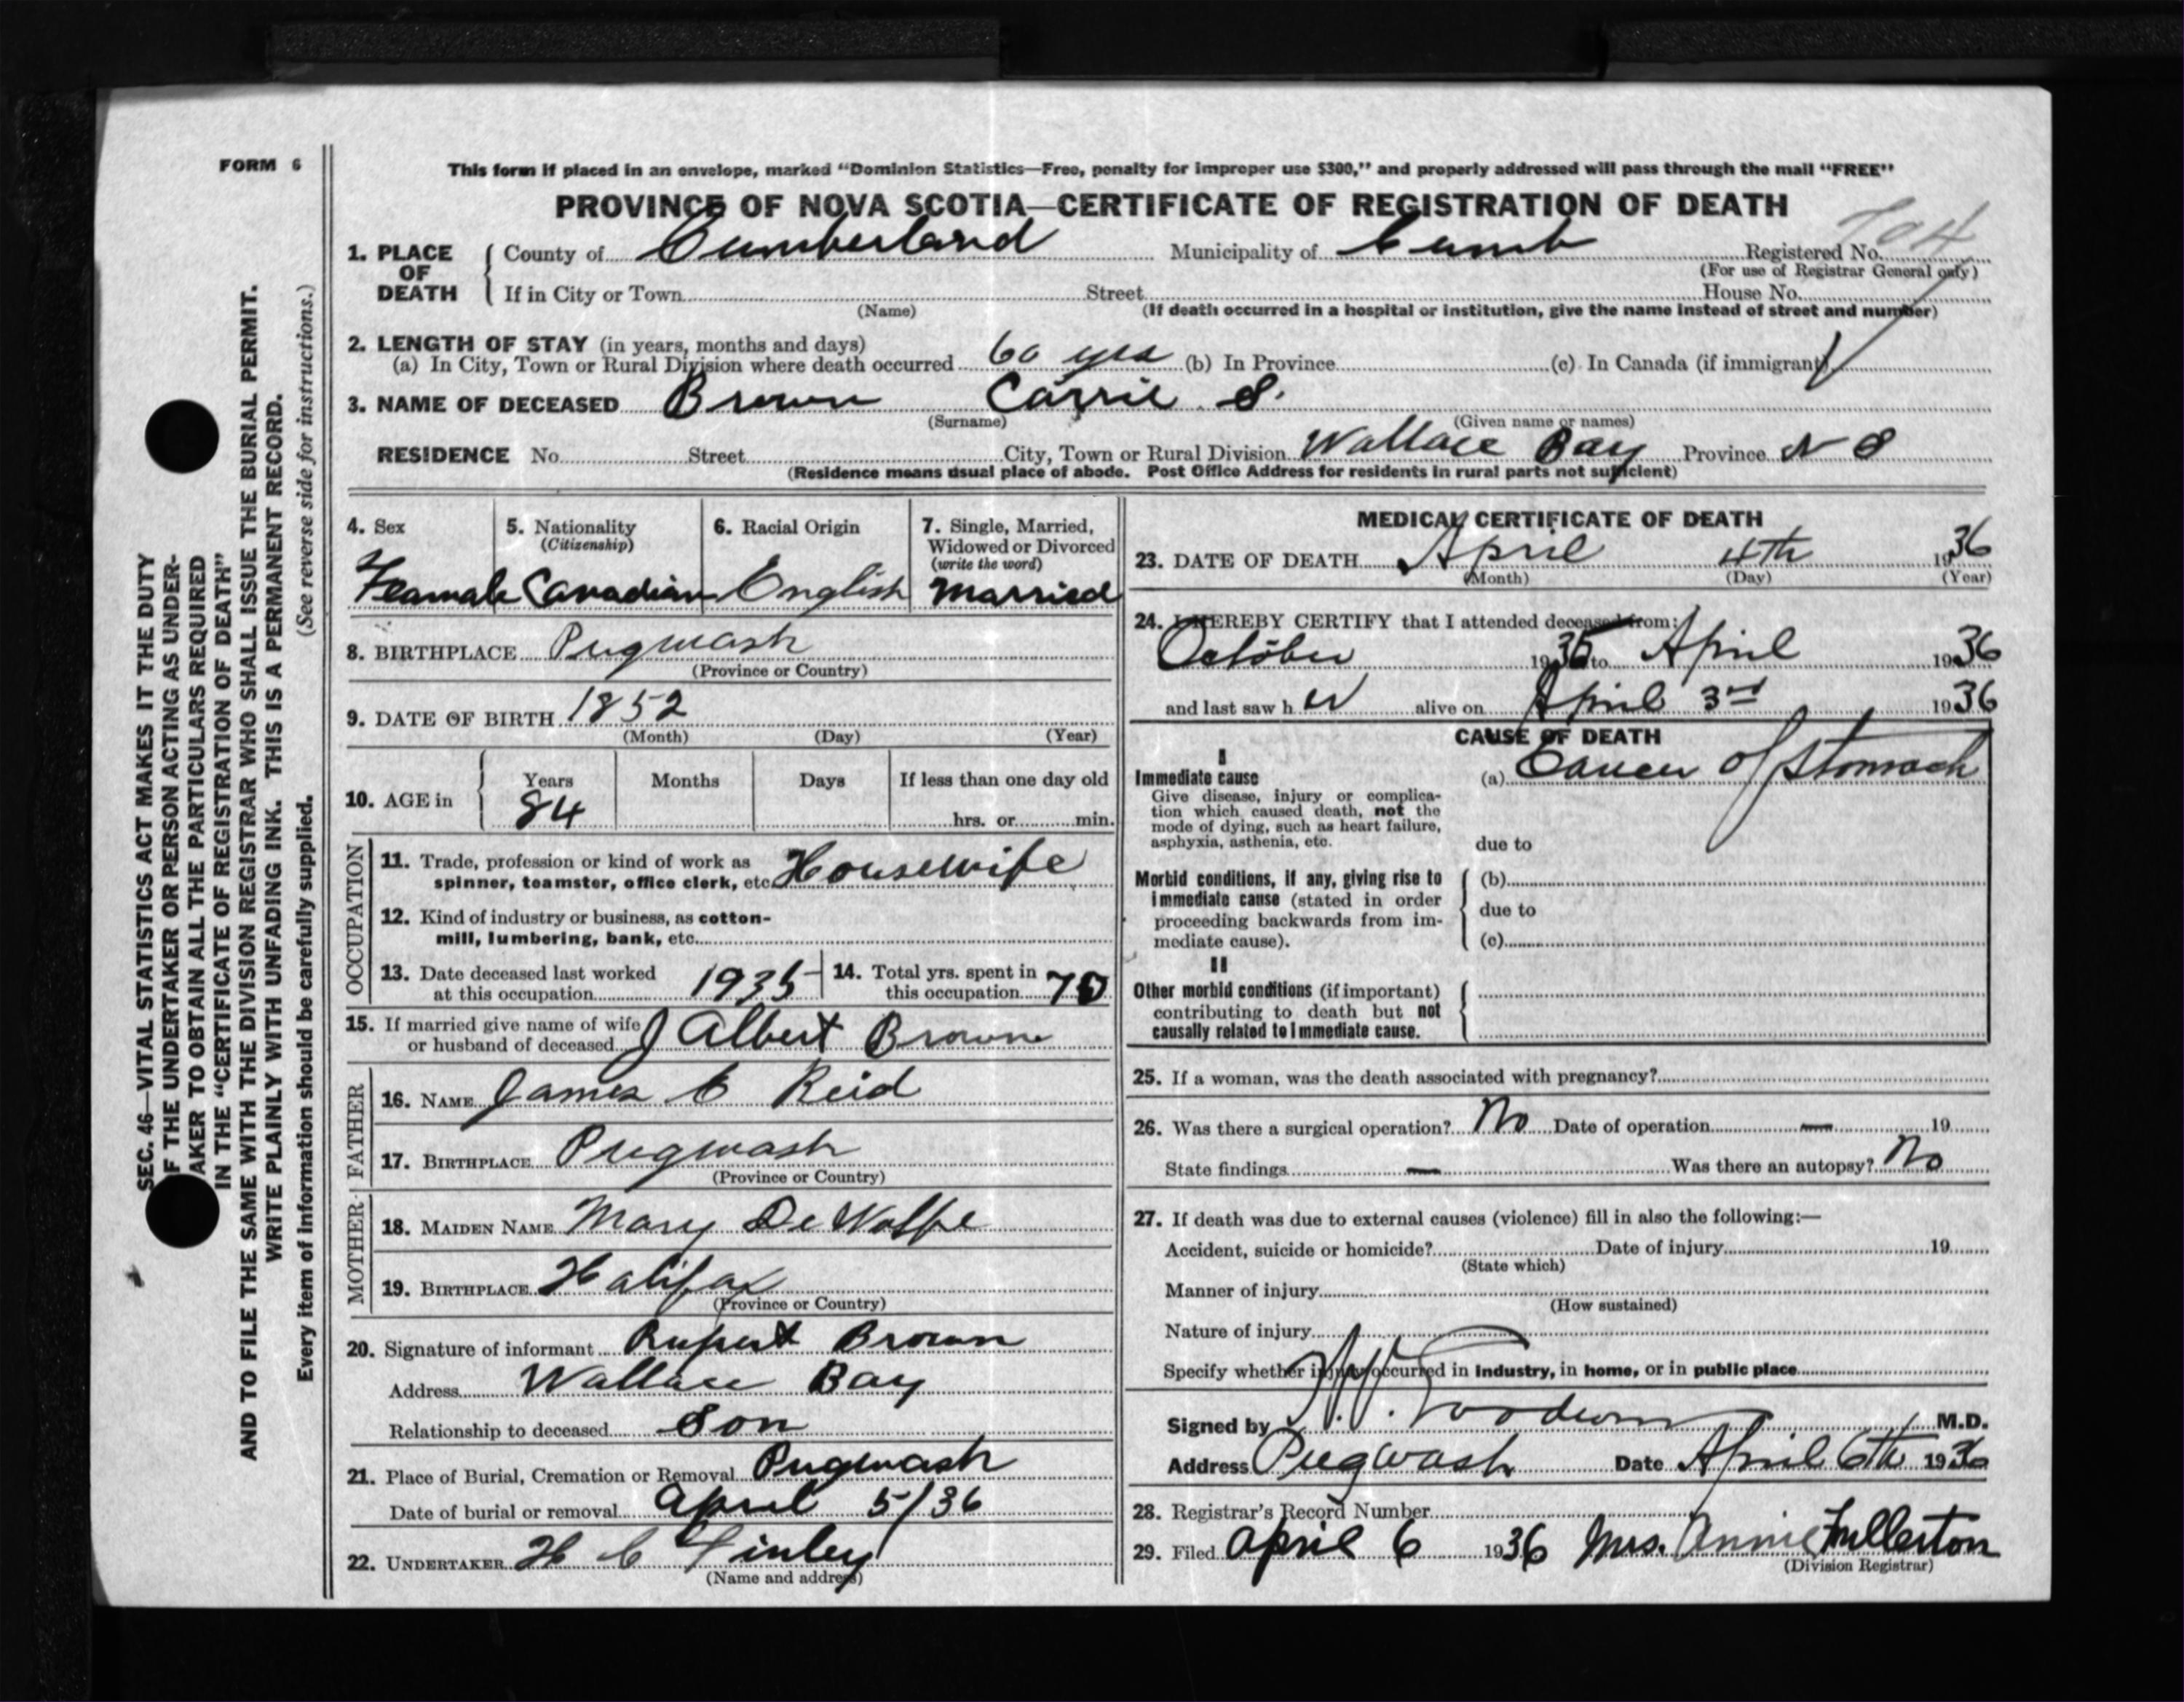 FORM 6
This form if placed in an envelope, marked "Dominion Statistics—Free, penalty for improper use $300," and properly addressed will pass through the mail "FREE"
PROVINCE OF NOVA SCOTIA—CERTIFICATE OF REGISTRATION OF DEATH
704
1. PLACE OF DEATH { County of Cumberland Municipality of Cumb Registered No.
(For use of Registrar General only)
If in City or Town Street House No.
(Name) (If death occurred in a hospital or institution, give the name instead of street and number)
2. LENGTH OF STAY (in years, months and days)
(a) In City, Town or Rural Division where death occurred 60 yrs (b) In Province (c) In Canada (if immigrant)
3. NAME OF DECEASED Brown Carrie S.
(Surname) (Given name or names)
RESIDENCE No. Street City, Town or Rural Division Wallace Bay Province N S
(Residence means usual place of abode. Post Office Address for residents in rural parts not sufficient)
4. Sex 5. Nationality (Citizenship) 6. Racial Origin 7. Single, Married, Widowed or Divorced (write the word)
Feamale Canadian English Married
8. BIRTHPLACE Pugwash
(Province or Country)
9. DATE OF BIRTH 1852
(Month) (Day) (Year)
10. AGE in { Years Months Days If less than one day old
84 hrs. or min.
OCCUPATION
11. Trade, profession or kind of work as
spinner, teamster, office clerk, etc. Housewife
12. Kind of industry or business, as cotton-
mill, lumbering, bank, etc.
13. Date deceased last worked at this occupation 1935 14. Total yrs. spent in this occupation 70
15. If married give name of wife
or husband of deceased J Albert Brown
FATHER
16. NAME James C Reid
17. BIRTHPLACE Pugwash
(Province or Country)
MOTHER
18. MAIDEN NAME Mary De Wolfe
19. BIRTHPLACE Halifax
(Province or Country)
20. Signature of informant Rupert Brown
Address Wallace Bay
Relationship to deceased Son
21. Place of Burial, Cremation or Removal Pugwash
Date of burial or removal April 5/36
22. UNDERTAKER H C Finley
(Name and address)
MEDICAL CERTIFICATE OF DEATH
23. DATE OF DEATH April 4th 1936
(Month) (Day) (Year)
24. I HEREBY CERTIFY that I attended deceased from:
October 1935 to April 1936
and last saw her alive on April 3rd 1936
CAUSE OF DEATH
I
Immediate cause (a) Cancer of Stomach
Give disease, injury or complica-
tion which caused death, not the
mode of dying, such as heart failure,
asphyxia, asthenia, etc. due to
Morbid conditions, if any, giving rise to { (b)
immediate cause (stated in order due to
proceeding backwards from im-
mediate cause). (c)
II
Other morbid conditions (if important)
contributing to death but not
causally related to immediate cause.
25. If a woman, was the death associated with pregnancy?
26. Was there a surgical operation? No Date of operation — 19
State findings — Was there an autopsy? No
27. If death was due to external causes (violence) fill in also the following:—
Accident, suicide or homicide? Date of injury 19
(State which)
Manner of injury
(How sustained)
Nature of injury
Specify whether injury occurred in industry, in home, or in public place
Signed by M.D.
Address Pugwash Date April 6th 1936
28. Registrar's Record Number
29. Filed April 6 1936 Mrs. Annie Fullerton
(Division Registrar)
SEC. 46—VITAL STATISTICS ACT MAKES IT THE DUTY
OF THE UNDERTAKER OR PERSON ACTING AS UNDER-
TAKER TO OBTAIN ALL THE PARTICULARS REQUIRED
IN THE "CERTIFICATE OF REGISTRATION OF DEATH"
AND TO FILE THE SAME WITH THE DIVISION REGISTRAR WHO SHALL ISSUE THE BURIAL PERMIT.
WRITE PLAINLY WITH UNFADING INK. THIS IS A PERMANENT RECORD.
Every item of information should be carefully supplied. (See reverse side for instructions.)